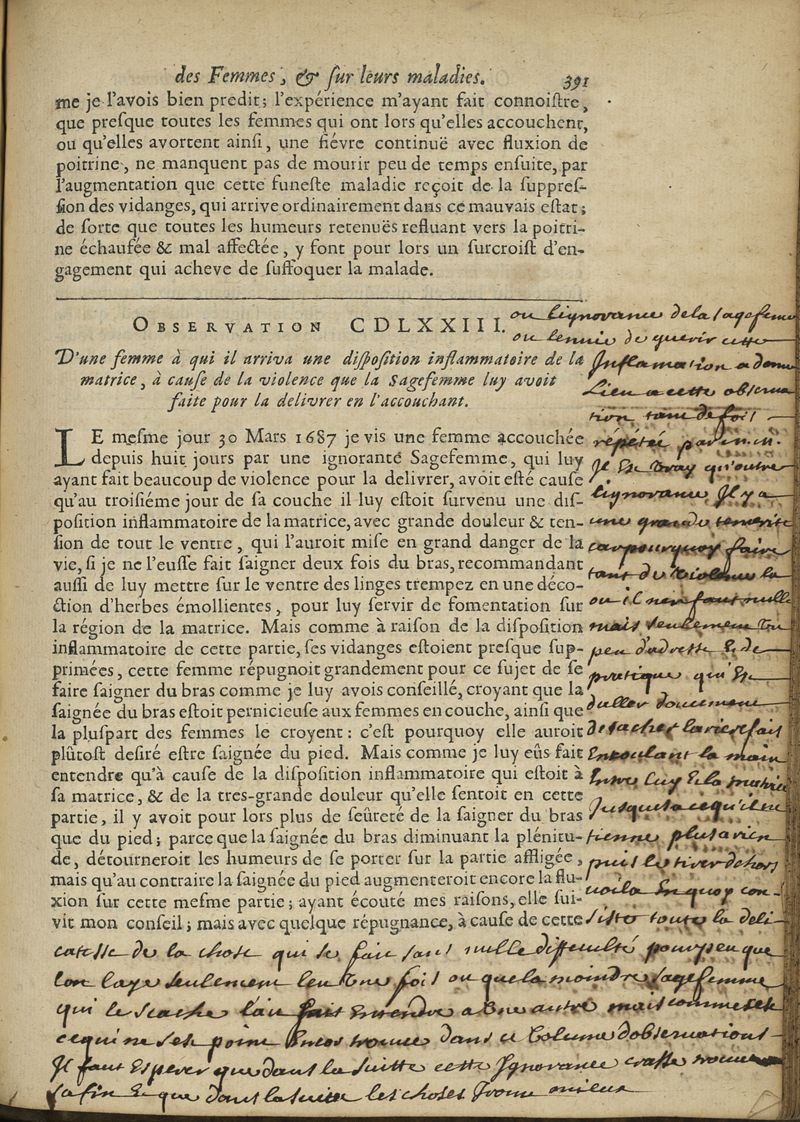 des Femmes, & ſur leurs maladies. 391
me je l'avois bien predit; l'expérience m'ayant fait connoiſtre,
que preſque toutes les femmes qui ont lors qu'elles accouchent,
ou qu'elles avortent ainſi, une fiévre continuë avec fluxion de
poitrine, ne manquent pas de mourir peu de temps enſuite, par
l'augmentation que cette funeſte maladie reçoit de la ſuppreſ-
ſion des vidanges, qui arrive ordinairement dans ce mauvais eſtat;
de ſorte que toutes les humeurs retenuës refluant vers la poitri-
ne échaufée & mal affectée, y font pour lors un ſurcroiſt d'en-
gagement qui acheve de ſuffoquer la malade.
OBSERVATION CDLXXIII.
D'une femme à qui il arriva une diſpoſition inflammatoire de la
matrice, à cauſe de la violence que la Sagefemme luy avoit
faite pour la delivrer en l'accouchant.
LE meſme jour 30 Mars 1687 je vis une femme accouchée
depuis huit jours par une ignorante Sagefemme, qui luy
ayant fait beaucoup de violence pour la delivrer, avoit eſté cauſe
qu'au troiſiéme jour de ſa couche il luy eſtoit ſurvenu une diſ-
poſition inflammatoire de la matrice, avec grande douleur & ten-
ſion de tout le ventre, qui l'auroit miſe en grand danger de la
vie, ſi je ne l'euſſe fait ſaigner deux fois du bras, recommandant
auſſi de luy mettre ſur le ventre des linges trempez en une déco-
ction d'herbes émollientes, pour luy ſervir de fomentation ſur
la région de la matrice. Mais comme à raiſon de la diſpoſition
inflammatoire de cette partie, ſes vidanges eſtoient preſque ſup-
primées, cette femme répugnoit grandement pour ce ſujet de ſe
faire ſaigner du bras comme je luy avois conſeillé, croyant que la
ſaignée du bras eſtoit pernicieuſe aux femmes en couche, ainſi que
la pluſpart des femmes le croyent: c'eſt pourquoy elle auroit
plûtoſt deſiré eſtre ſaignée du pied. Mais comme je luy eûs fait
entendre qu'à cauſe de la diſpoſition inflammatoire qui eſtoit à
ſa matrice, & de la tres-grande douleur qu'elle ſentoit en cette
partie, il y avoit pour lors plus de ſeûreté de la ſaigner du bras
que du pied; parce que la ſaignée du bras diminuant la plénitu-
de, détourneroit les humeurs de ſe porter ſur la partie affligée,
mais qu'au contraire la ſaignée du pied augmenteroit encore la flu-
xion ſur cette meſme partie; ayant écouté mes raiſons, elle ſui-
vit mon conſeil; mais avec quelque répugnance, à cauſe de cette
ou lignorance de la sagefemme
ou lennie de querir cette
Inflamation a donné
Lieu a cette observa
tion tant de fois
répétée par m. m.
Il Est vray qu'outre
lignorance Il y a
une grande temerité
car pourquoy faire
tant de violence la
ou il n'en faut nulle
mais seulement un
peu d'adresse & de
pratique qui Est
daller doucement
detacher larierefait
En coulant la main
Entre luy & la matrice
Jusqu'a ce qu'il ne
tienne plus a rien
puis les tirer dehors
voila En quoy con-
siste toute la deli
catesse de la chose qui se fait sans nulle difficulté pour peu que
lon laye seulement leu une fois ou que la moindre sagefemme
qui le scache l'ait fait Entendre a une autre mais comme
ce qui ne sest point Encor trouvé dans ce volume d'observations
Il faut Esperer que dans la suitte cette Ignorance crasse trouvera
sa fin & que dans la suitte les choses Iront mieux